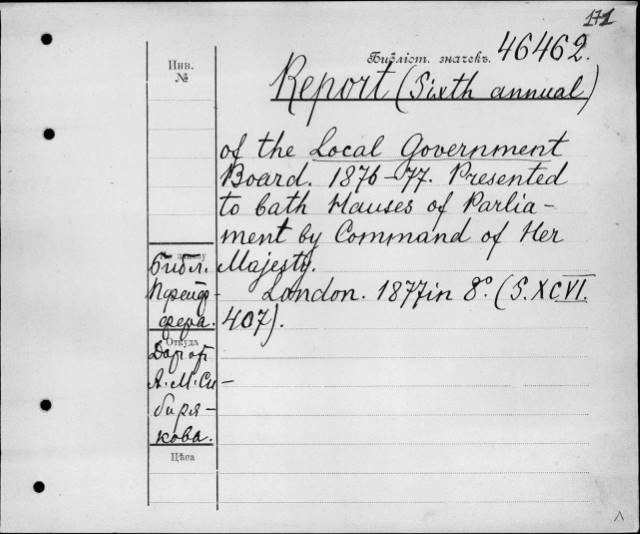 171
Библіот. значекъ. 46462.
Инв.
№
Report (Sixth annual)
of the Local Government
Board. 1876-77. Presented
to bath Hauses of Parlia-
ment by Command of Her
Majesty.
London. 1877 in 8°. (S. XCVI.
407).
Библ.
Пфейф-
фера.
Откуда
Дар от
А. М. Си-
биря-
кова.
Цѣна